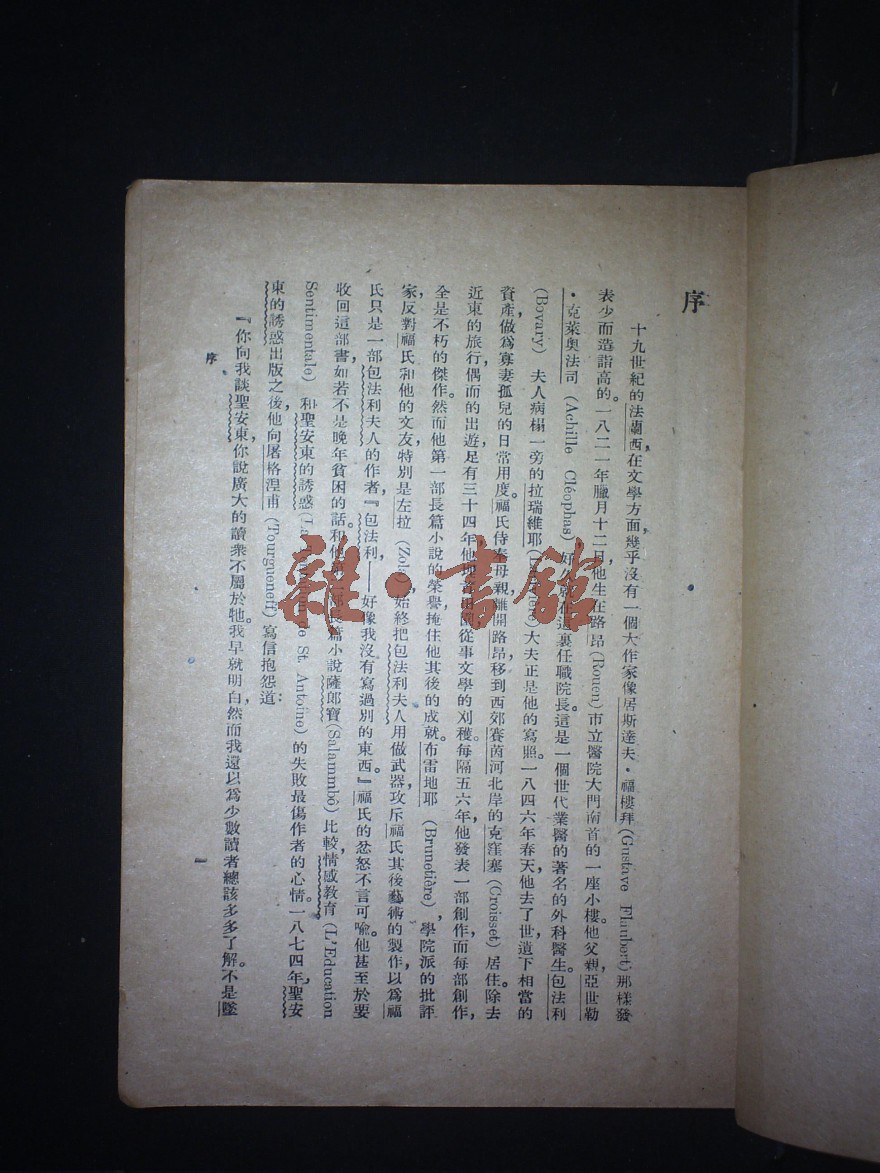 序
十九世紀的法蘭西，在文學方面，幾乎沒有一個大作家像居斯達夫·福樓拜(Gustave Flaubert)那樣發
表少而造詣高的。一八二一年臘月十二日，他生在路昂(Rouen)市立醫院大門南首的一座小樓。他父親，亞世勒
·克萊奧法司(Achille Cléophas)，好
裏任職院長。這是一個世代業醫的著名的外科醫生。包法利
(Bovary)夫人病榻一旁的拉瑞維耶
大夫正是他的寫照。一八四六年春天，他去了世，遺下相當的
資產，做爲寡妻孤兒的日常用度。福氏侍奉母親，離開路昂，移到西郊賽茵河北岸的克窪塞(Croisset)居住。除去
近東的旅行，偶而的出遊，足有三十四年，他
從事文學的刈穫。每隔五六年，他發表一部創作，而每部創作，
全是不朽的傑作。然而他第一部長篇小說的榮譽，掩住他其後的成就。布雷地耶(Brunetière)，學院派的批評
家，反對福氏和他的文友，特別是左拉(Zola)，始終把包法利夫人用做武器，攻斥福氏其後藝術的製作，以爲福
氏只是一部包法利夫人的作者，『包法利——好像我沒有寫過別的東西。』福氏的忿怒不言可喻。他甚至於要
收回這部書，如若不是晚年貧困的話。和他第一部長篇小說薩郎寶(Salammbô)比較，情感教育(L'Education
Sentimentale)和聖安東的誘惑
de St. Antoine)的失敗最傷作者的心情。一八七四年，聖安
東的誘惑出版之後，他向屠格涅甫(Tourgueneff)寫信抱怨道：
『你向我談聖安東，你說廣大的讀衆不屬於牠。我早就明白，然而我還以爲少數讀者總該多多了解。不是墜
序
一
雜·書館